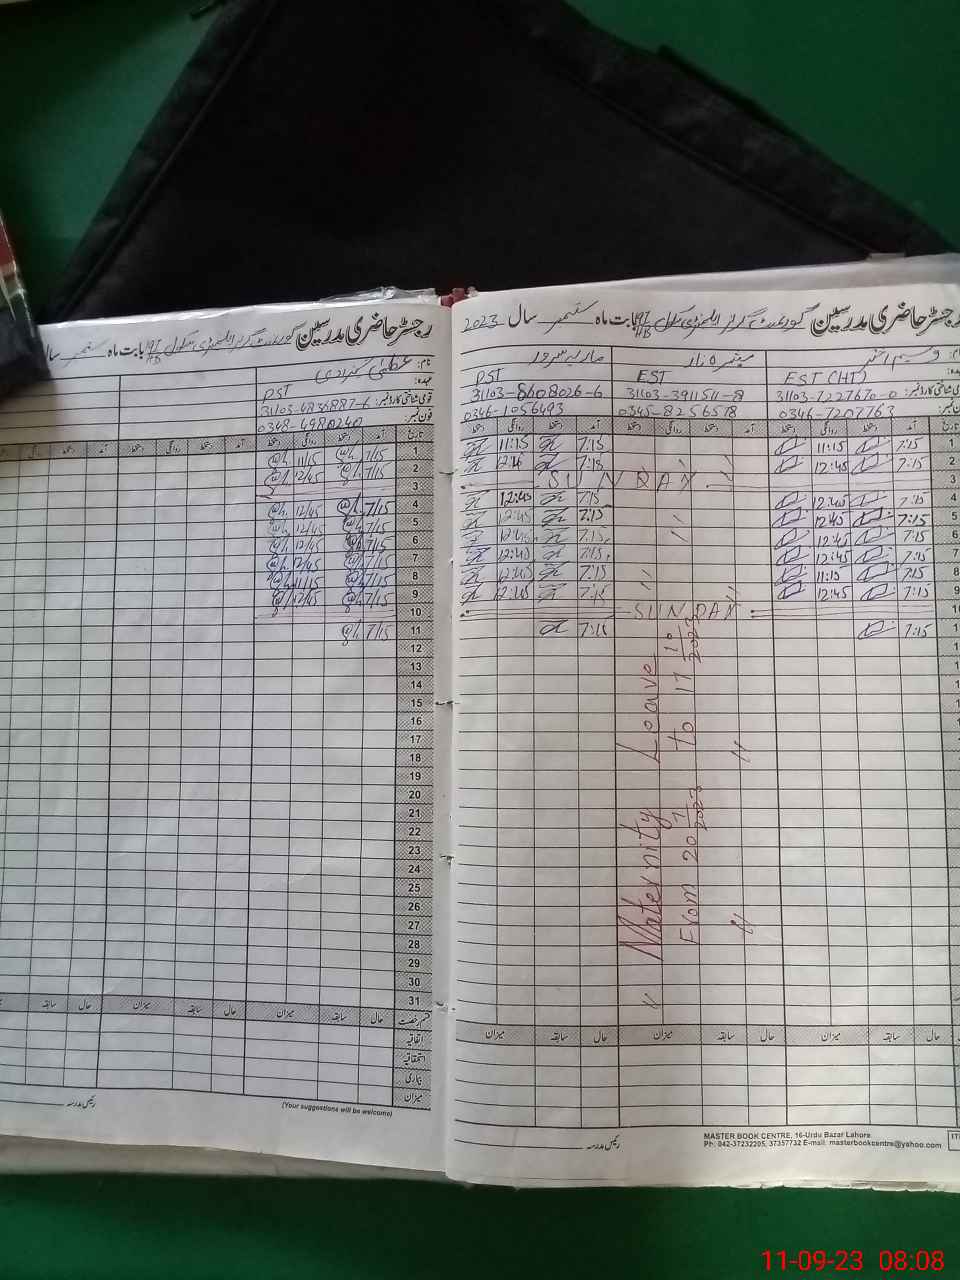 رجسٹر حاضری مدرسین گورنمنٹ گرلز ایلیمنٹری سکول 197/HB بابت ماہ ستمبر سال 2023
نام:
عہدہ: EST (HT) EST PST
قومی شناختی کارڈ نمبر: 31103-7227670-0 31103-3911511-8 31103-8608026-6
فون نمبر: 0346-7207763 0345-8256578 0346-1056493
تاریخ آمد دستخط روانگی دستخط آمد دستخط روانگی دستخط آمد دستخط روانگی دستخط
1 7:15 11:15 7:15 11:15
2 7:15 12:45 7:15
SUNDAY
4 7:15 12:45 7:15 12:45
5 7:15 12:45 7:15 12:45
6 7:15 12:45 7:15 12:45
7 7:15 12:45 7:15 12:45
8 7:15 11:15 7:15 12:45
9 7:15 12:45 7:15 12:45
SUNDAY
7:15 7:15
" Maternity Leave
From 20 7/2023 to 17 10/2023
" "
حال سابقہ میزان حال سابقہ میزان حال سابقہ میزان
رئیس مدرسہ
MASTER BOOK CENTRE, 16-Urdu Bazar Lahore
Ph: 042-37232205, 37357732 E-mail: masterbookcentre@yahoo.com
رجسٹر حاضری مدرسین گورنمنٹ گرلز ایلیمنٹری سکول 197/HB بابت ماہ ستمبر سال
نام: عظمیٰ
عہدہ: PST
قومی شناختی کارڈ نمبر: 31103-4836887-6
فون نمبر: 0348-4980240
تاریخ آمد دستخط روانگی دستخط آمد دستخط روانگی دستخط آمد دستخط
1 7/15 11/15
2 7/15 12/45
3
4 7/15 12/45
5 7/15 12/45
6 7/15 12/45
7 7/15 12/45
8 7/15 11/15
9 7/15 12/45
10
11 7/15
12
13
14
15
16
17
18
19
20
21
22
23
24
25
26
27
28
29
30
31
قسم رخصت حال سابقہ میزان حال سابقہ میزان حال سابقہ
اتفاقیہ
استحقاقیہ
بیماری
میزان
(Your suggestions will be welcome)
رئیس مدرسہ
11-09-23 08:08